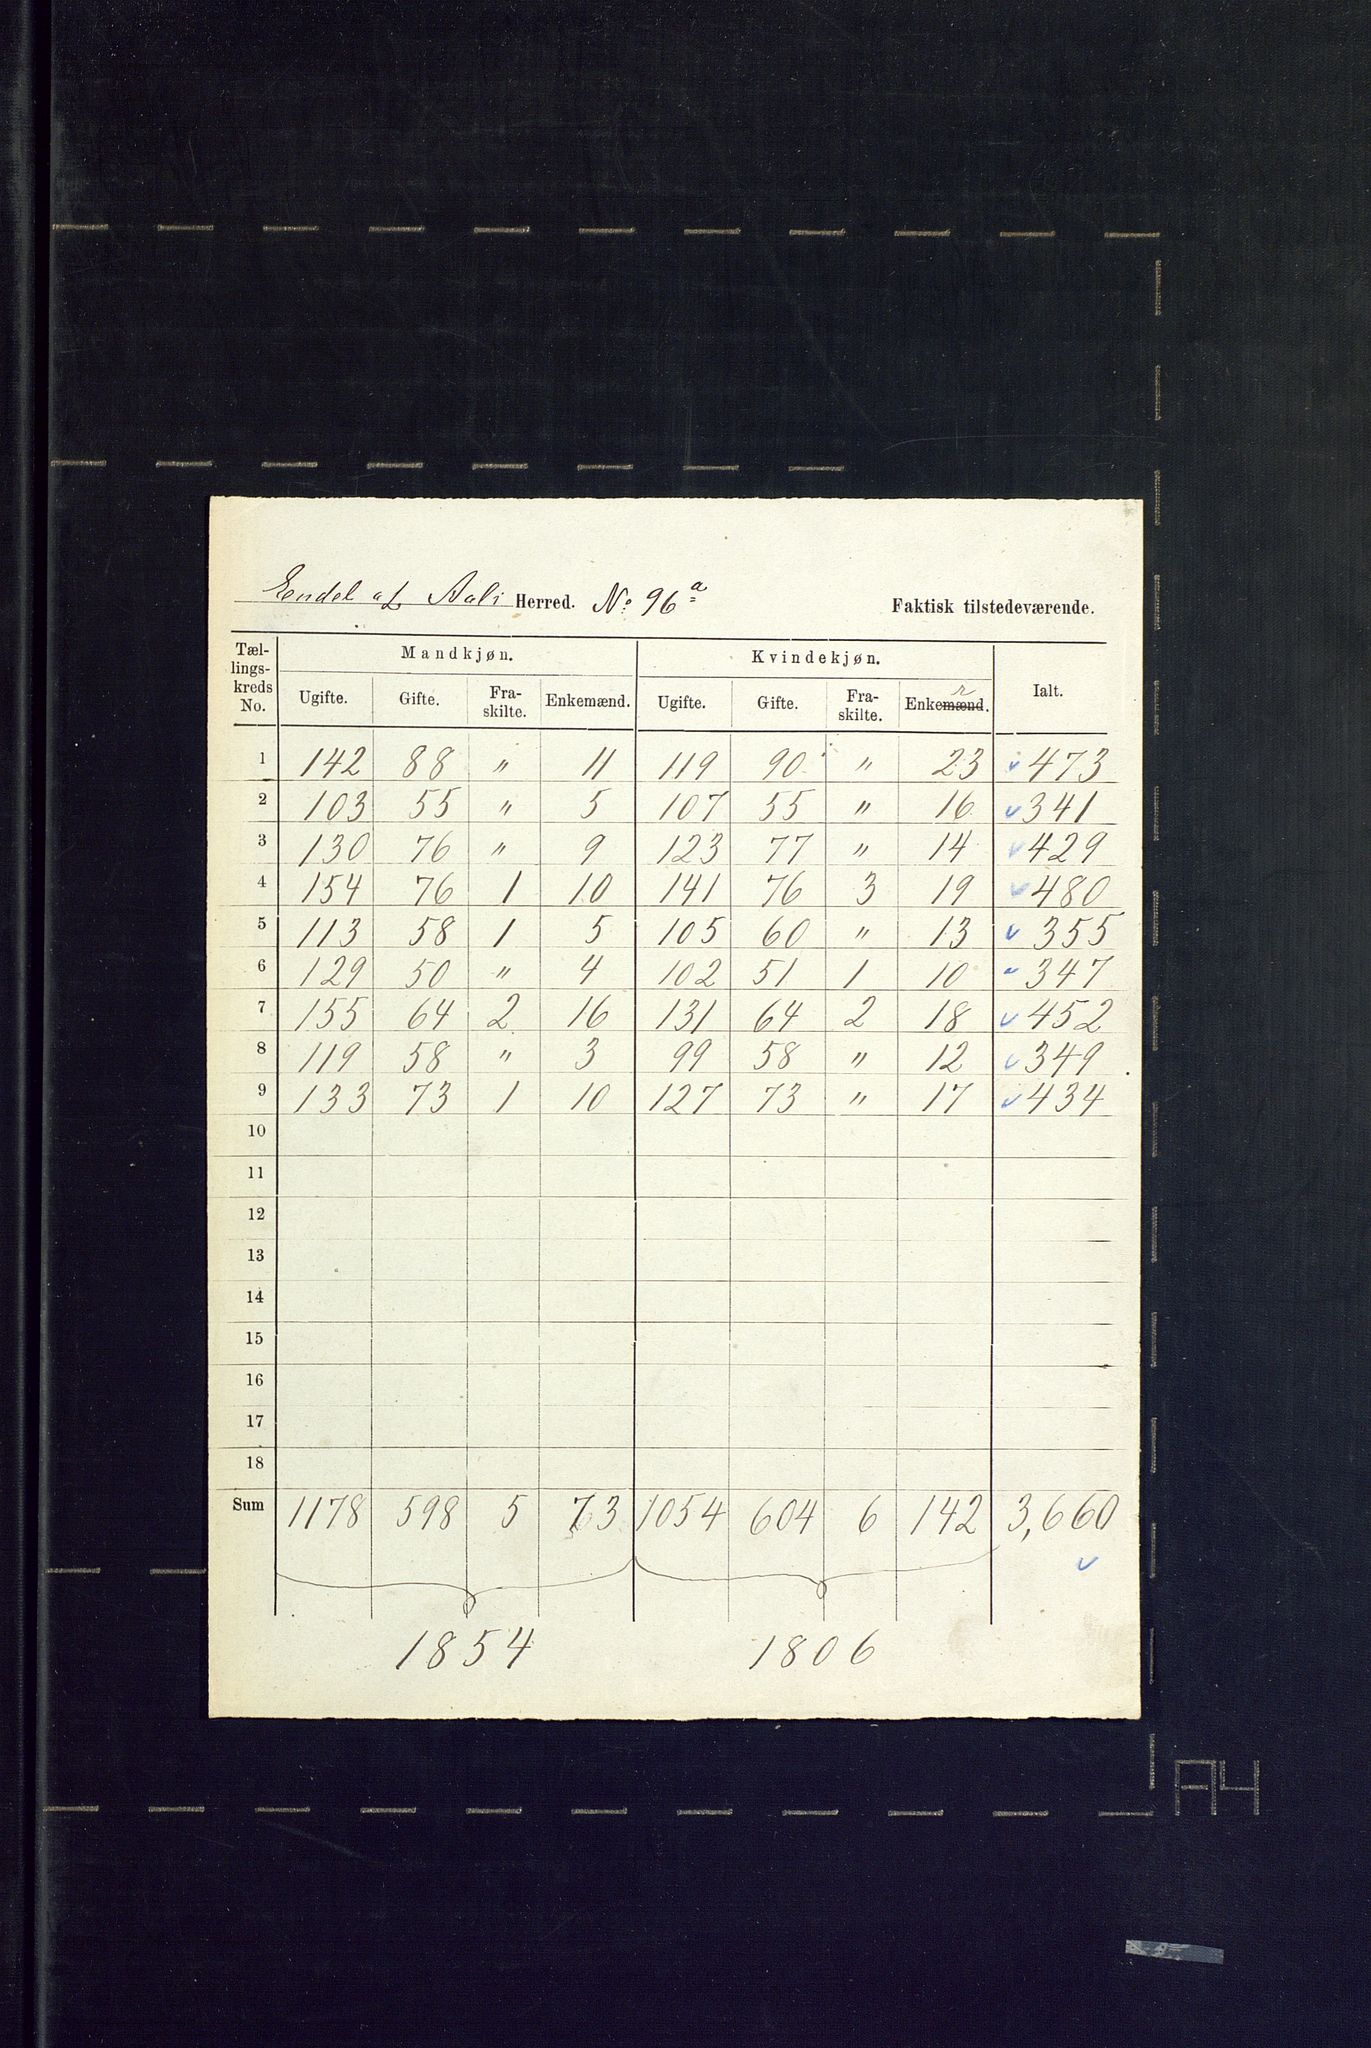 Endel af Aals Herred. No. 96 a
Faktisk tilstedeværende.
Tællingskreds No. | Mandkjøn. | Kvindekjøn. | Ialt.
Ugifte. | Gifte. | Fraskilte. | Enkemænd. | Ugifte. | Gifte. | Fraskilte. | Enkemænd. r
1 | 142 | 88 | " | 11 | 119 | 90 | " | 23 | 473
2 | 103 | 55 | " | 5 | 107 | 55 | " | 16 | 341
3 | 130 | 76 | " | 9 | 123 | 77 | " | 14 | 429
4 | 154 | 76 | 1 | 10 | 141 | 76 | 3 | 19 | 480
5 | 113 | 58 | 1 | 5 | 105 | 60 | " | 13 | 355
6 | 129 | 50 | " | 4 | 102 | 51 | 1 | 10 | 347
7 | 155 | 64 | 2 | 16 | 131 | 64 | 2 | 18 | 452
8 | 119 | 58 | " | 3 | 99 | 58 | " | 12 | 349
9 | 133 | 73 | 1 | 10 | 127 | 73 | " | 17 | 434
10
11
12
13
14
15
16
17
18
Sum | 1178 | 598 | 5 | 73 | 1054 | 604 | 6 | 142 | 3,660
1854 | 1806
A4